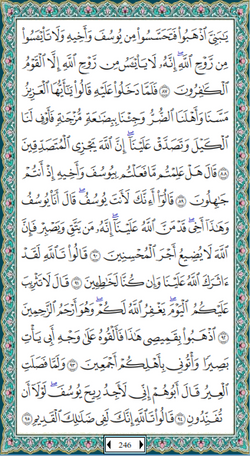 يَٰبَنِىَّ ٱذْهَبُوا۟ فَتَحَسَّسُوا۟ مِن يُوسُفَ وَأَخِيهِ وَلَا تَا۟يْـَٔسُوا۟
مِن رَّوْحِ ٱللَّهِ ۖ إِنَّهُۥ لَا يَا۟يْـَٔسُ مِن رَّوْحِ ٱللَّهِ إِلَّا ٱلْقَوْمُ
ٱلْكَٰفِرُونَ ٨٧ فَلَمَّا دَخَلُوا۟ عَلَيْهِ قَالُوا۟ يَٰٓأَيُّهَا ٱلْعَزِيزُ
مَسَّنَا وَأَهْلَنَا ٱلضُّرُّ وَجِئْنَا بِبِضَٰعَةٍ مُّزْجَىٰةٍ فَأَوْفِ لَنَا
ٱلْكَيْلَ وَتَصَدَّقْ عَلَيْنَآ ۖ إِنَّ ٱللَّهَ يَجْزِى ٱلْمُتَصَدِّقِينَ
٨٨ قَالَ هَلْ عَلِمْتُم مَّا فَعَلْتُم بِيُوسُفَ وَأَخِيهِ إِذْ أَنتُمْ
جَٰهِلُونَ ٨٩ قَالُوٓا۟ أَءِنَّكَ لَأَنتَ يُوسُفُ ۖ قَالَ أَنَا۠ يُوسُفُ
وَهَٰذَآ أَخِى ۖ قَدْ مَنَّ ٱللَّهُ عَلَيْنَآ ۖ إِنَّهُۥ مَن يَتَّقِ وَيَصْبِرْ فَإِنَّ
ٱللَّهَ لَا يُضِيعُ أَجْرَ ٱلْمُحْسِنِينَ ٩٠ قَالُوا۟ تَٱللَّهِ لَقَدْ
ءَاثَرَكَ ٱللَّهُ عَلَيْنَا وَإِن كُنَّا لَخَٰطِـِٔينَ ٩١ قَالَ لَا تَثْرِيبَ
عَلَيْكُمُ ٱلْيَوْمَ ۖ يَغْفِرُ ٱللَّهُ لَكُمْ ۖ وَهُوَ أَرْحَمُ ٱلرَّٰحِمِينَ
٩٢ ٱذْهَبُوا۟ بِقَمِيصِى هَٰذَا فَأَلْقُوهُ عَلَىٰ وَجْهِ أَبِى يَأْتِ
بَصِيرًا وَأْتُونِى بِأَهْلِكُمْ أَجْمَعِينَ ٩٣ وَلَمَّا فَصَلَتِ
ٱلْعِيرُ قَالَ أَبُوهُمْ إِنِّى لَأَجِدُ رِيحَ يُوسُفَ ۖ لَوْلَآ أَن
تُفَنِّدُونِ ٩٤ قَالُوا۟ تَٱللَّهِ إِنَّكَ لَفِى ضَلَٰلِكَ ٱلْقَدِيمِ ٩٥
246